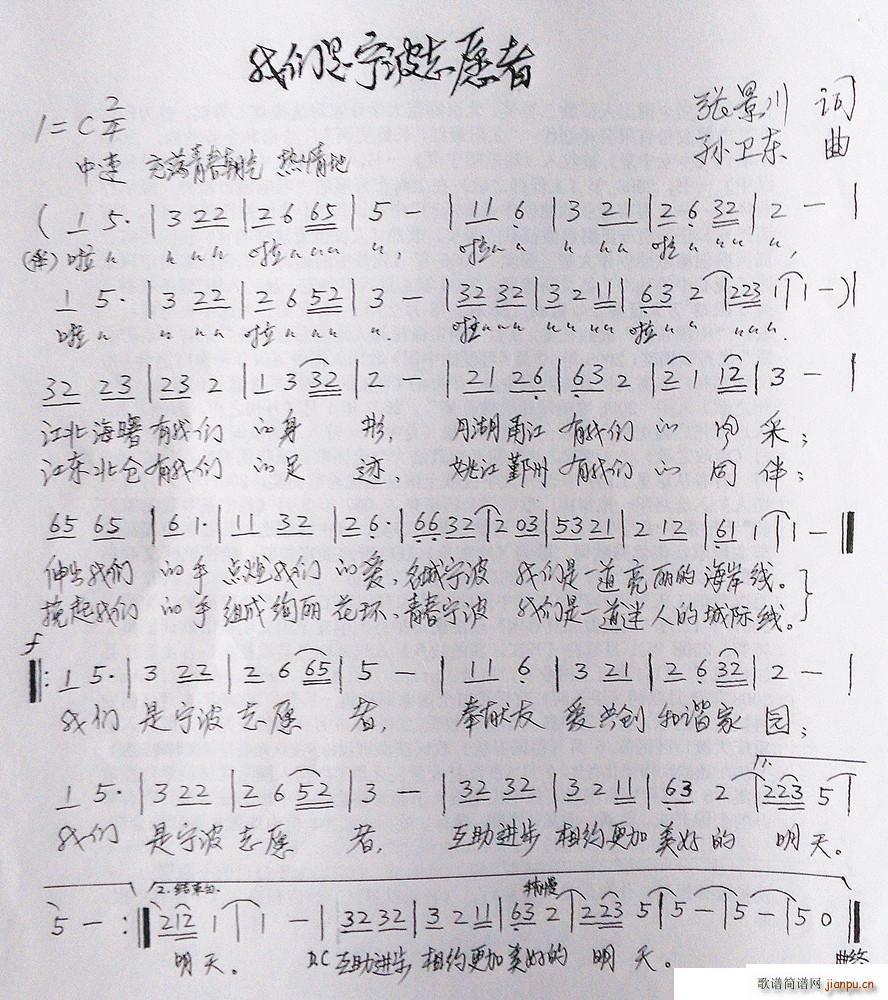 我们是宁波志愿者
1=C 2/4
张景川 词
孙卫东 曲
中速 充满青春朝气 热情地
( 1 5· | 3 22 | 2 6 65 | 5 — | 11 6 | 3 21 | 2 6 32 | 2 — |
(伴) 啦 " " " " 啦 " " " ", 啦 " " " " " 啦 " " " ",
1 5· | 3 22 | 2 6 52 | 3 — | 32 32 | 3 2 11 | 63 2 | 223 1 | 1 —) |
啦 " " " " 啦 " " " ". 啦 " " " " " " " 啦 " " " " " ".
32 23 | 23 2 | 1 3 32 | 2 — | 21 26 | 63 2 | 2 1 12 | 3 — |
江北海曙有我们 的身 形, 月湖甬江 有我们 的 风 采;
江东北仑有我们 的足 迹, 姚江鄞州 有我们 的 同 伴;
65 65 | 6 1· | 11 32 | 2 6· | 66 32 | 2 03 | 53 21 | 2 12 | 61 1 | 1 — ‖
伸出我们 的手 点燃我们 的爱,名城宁波 我们是一道亮丽的海岸线。
挽起我们 的手 组成绚丽 花环,青春宁波 我们是一道迷人的城际线。
f
‖: 1 5· | 3 22 | 2 6 65 | 5 — | 11 6 | 3 21 | 2 6 32 | 2 — |
我们 是宁波 志愿 者, 奉献友 爱共创 和谐家 园;
1.
1 5· | 3 22 | 2 6 52 | 3 — | 32 32 | 3 2 11 | 63 2 | 223 5 |
我们 是宁波 志愿 者, 互助进步 相约更加 美好的 明天。
2. 结束句. 稍慢
5 — :‖ 212 1 | 1 — | 32 32 | 3 2 11 | 63 2 | 223 5 | 5 — | 5 — | 5 0 ‖
明天。 D.C 互助进步 相约更加美好的 明 天。 曲终
歌谱简谱网 jianpu.cn